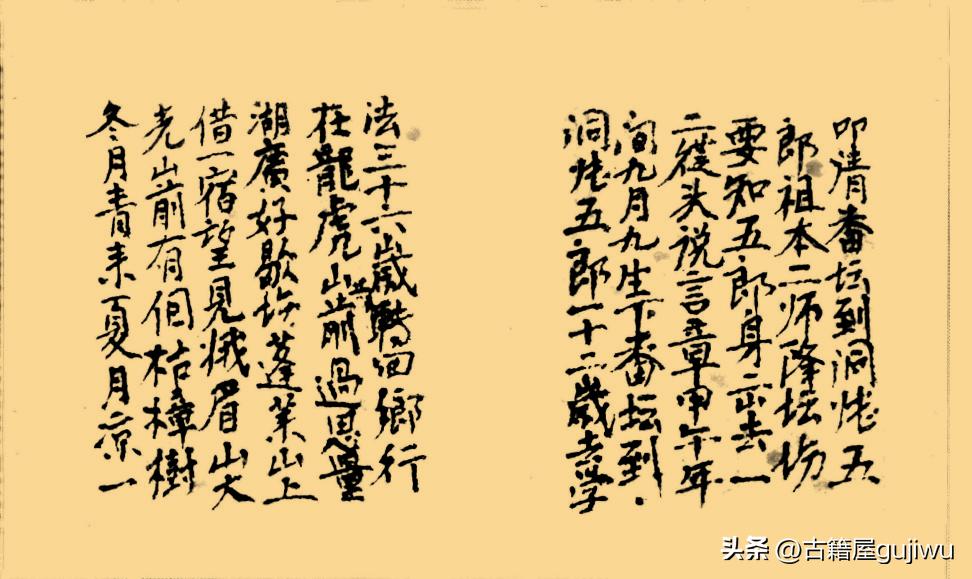 叩请番坛到洞
五
郎祖本二师降坛场
要知五郎身
去一
二从头说言章甲午年
间九月九生下番坛到
洞
五郎一十二岁去学
法三十六歲轉回鄉行
在龍虎山前過思量
湖廣好歇
蓬莱山上
借一宿望見
眉山大
堯山前有個枯樟樹
冬月青来夏月凉一
头条 @古籍屋gujiwu